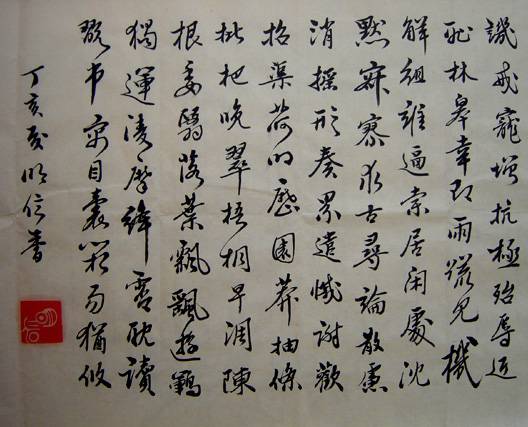 譏戒寵增抗極殆辱近
耻林皋幸即兩疏見機
解組誰逼索居閑處沈
默寂寥求古尋論散慮
消摇欣奏累遣慼謝歡
招渠荷的歷園莽抽條
枇杷晚翠梧桐早凋陳
根委翳落葉飄飖遊鵾
獨運凌摩絳霄耽讀
翫市寓目囊箱易猶攸
丁亥夏信書